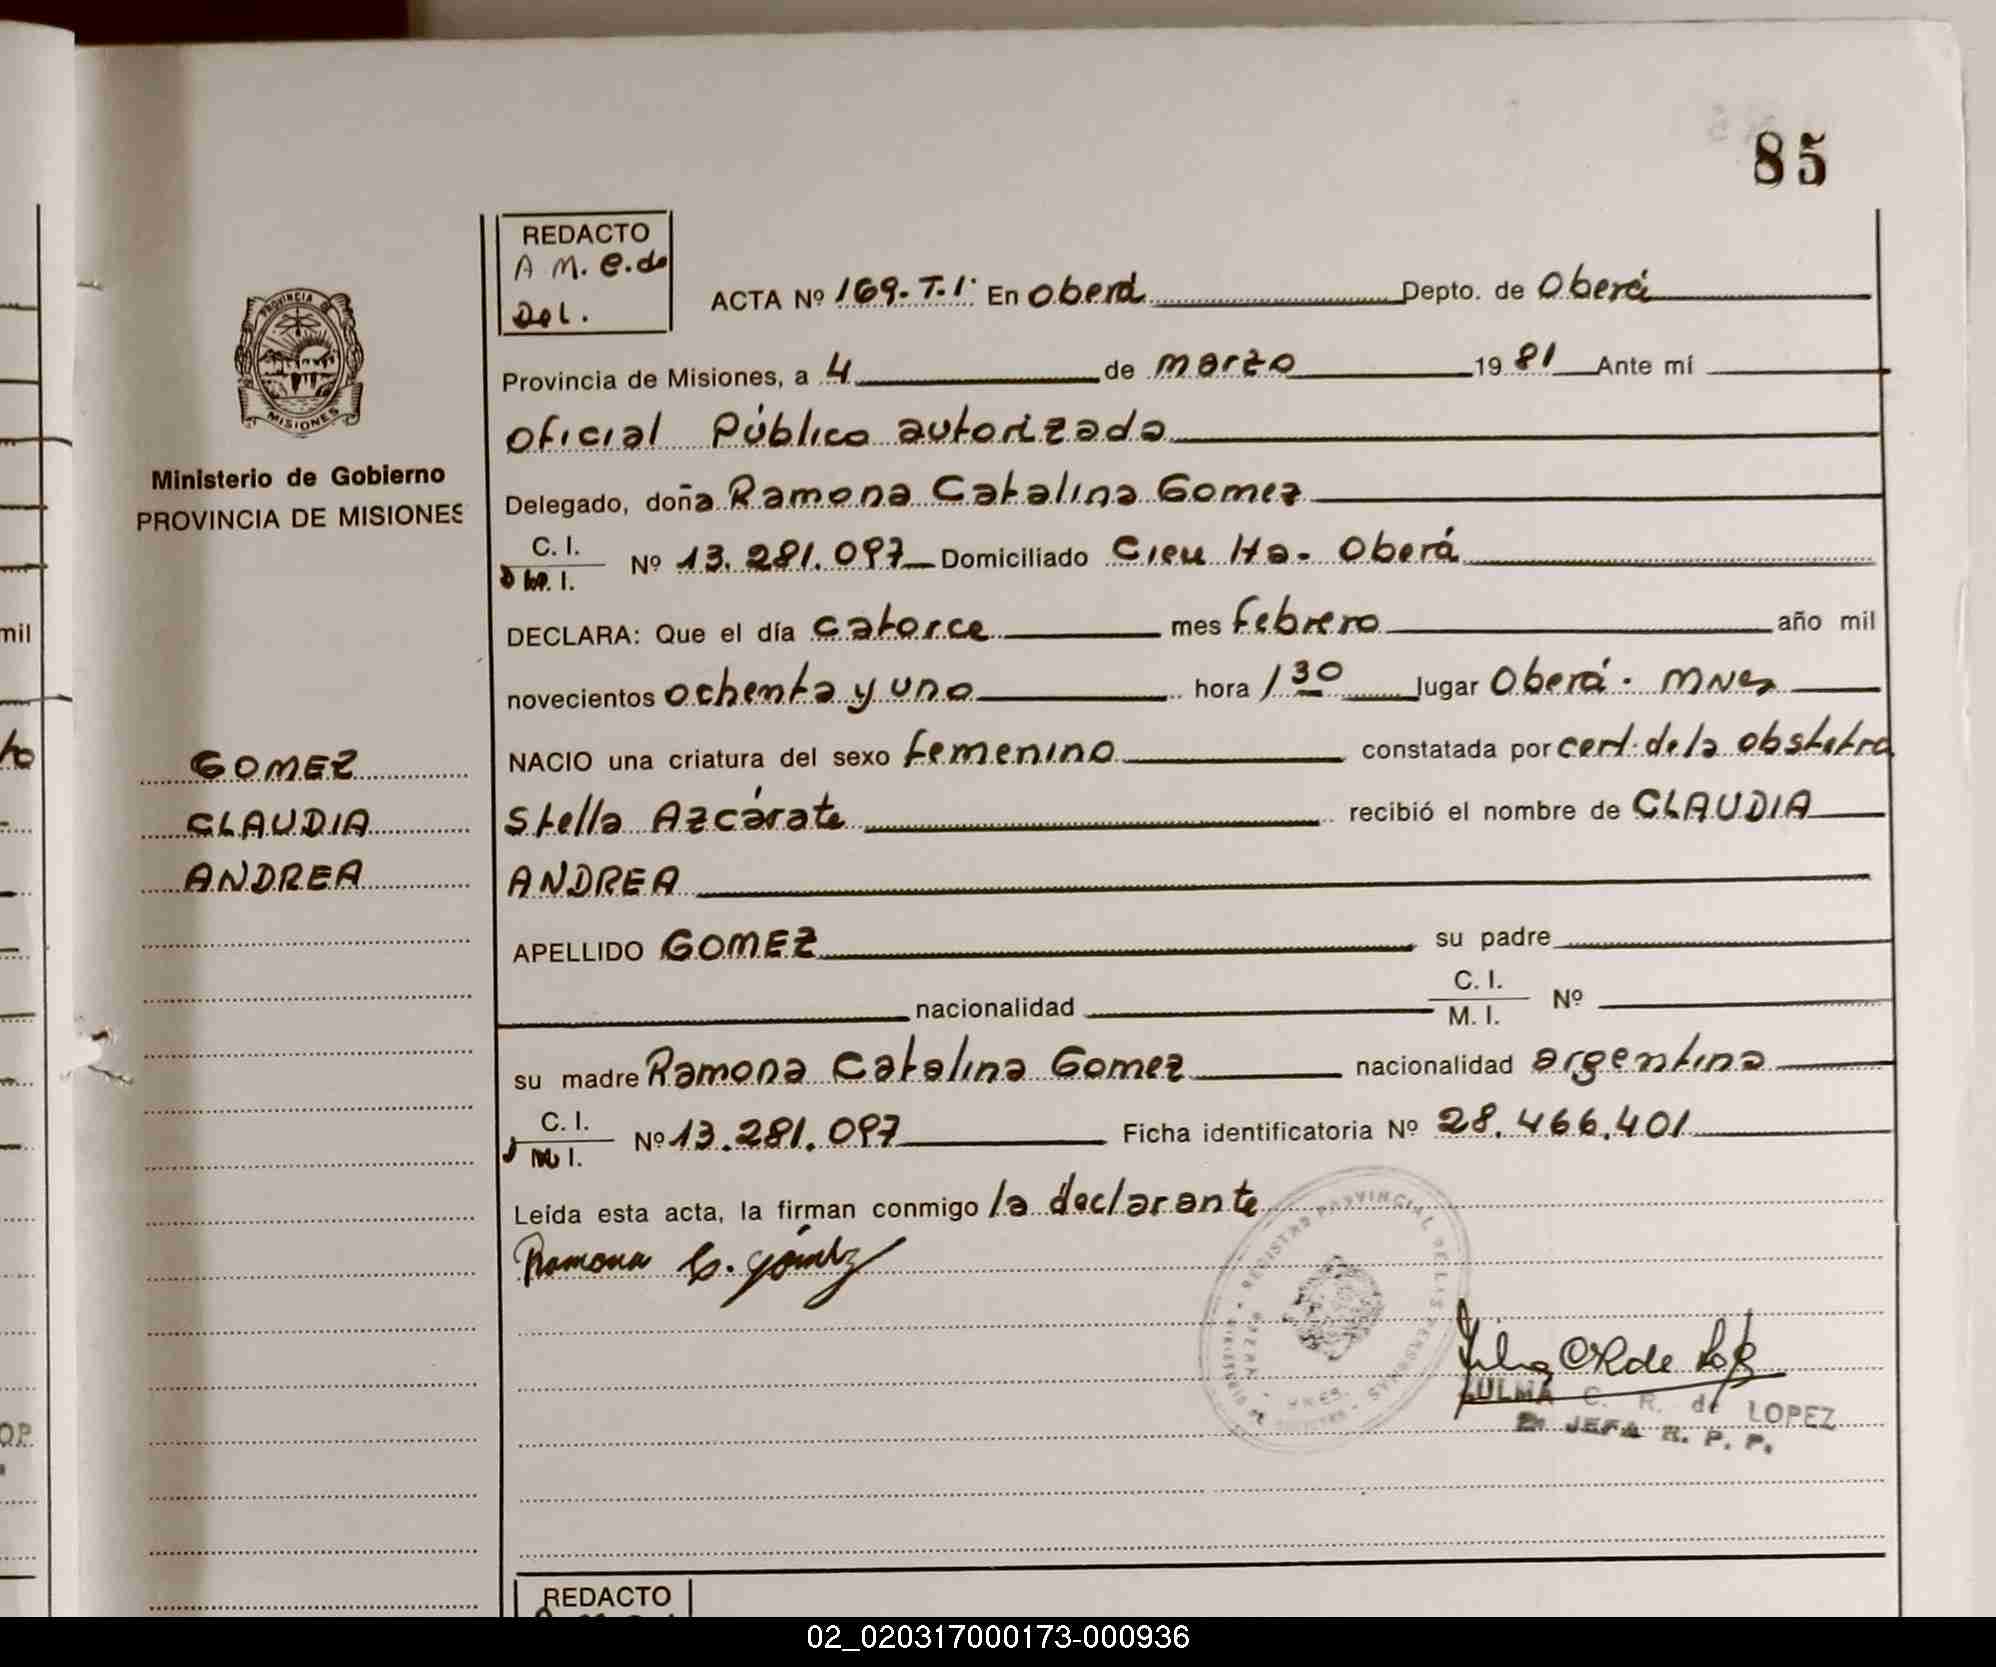 85
REDACTO
A M. e. do
Del.
ACTA Nº 169. T. 1º En Oberá Depto. de Oberá
Provincia de Misiones, a 4 de marzo 19 81 Ante mí
Oficial Público autorizado
Delegado, doña Ramona Catalina Gomez
C. I.
D M. I. Nº 13.281.097 Domiciliado Cieu Ha. Oberá
DECLARA: Que el día catorce mes febrero año mil
novecientos ochenta y uno hora 1 30 lugar Oberá. MNes
NACIO una criatura del sexo femenino constatada por cert. de la obstetra
Stella Azcárate recibió el nombre de CLAUDIA
ANDREA
APELLIDO GOMEZ su padre
nacionalidad C. I. M. I. Nº
su madre Ramona Catalina Gomez nacionalidad argentina
C. I.
M I. Nº 13.281.097 Ficha identificatoria Nº 28.466.401
Leída esta acta, la firman conmigo la declarante
Ramona C. Gómez
ZULMA C. R. de LOPEZ
JEFA R. P. P.
REGISTRO PROVINCIAL DE LAS PERSONAS
OBERA
MNES.
PROVINCIA DE
MISIONES
Ministerio de Gobierno
PROVINCIA DE MISIONES
GOMEZ
CLAUDIA
ANDREA
mil
to
OP.
REDACTO
02_020317000173-000936